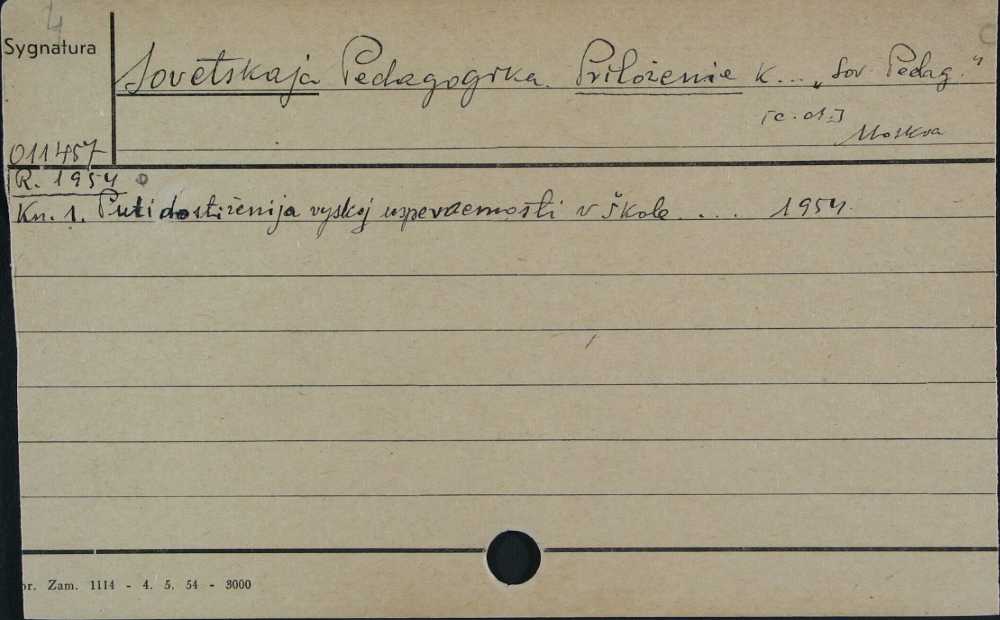 4
Sygnatura
Sovetskaja Pedagogika. Priloženie k... „Sov. Pedag."
[c. d.]
Moskva
011457
R. 1954
Kn. 1. Puti dostiženija vyskoj uspevaemosti v škole .... 1954.
or. Zam. 1114 - 4. 5. 54 - 3000